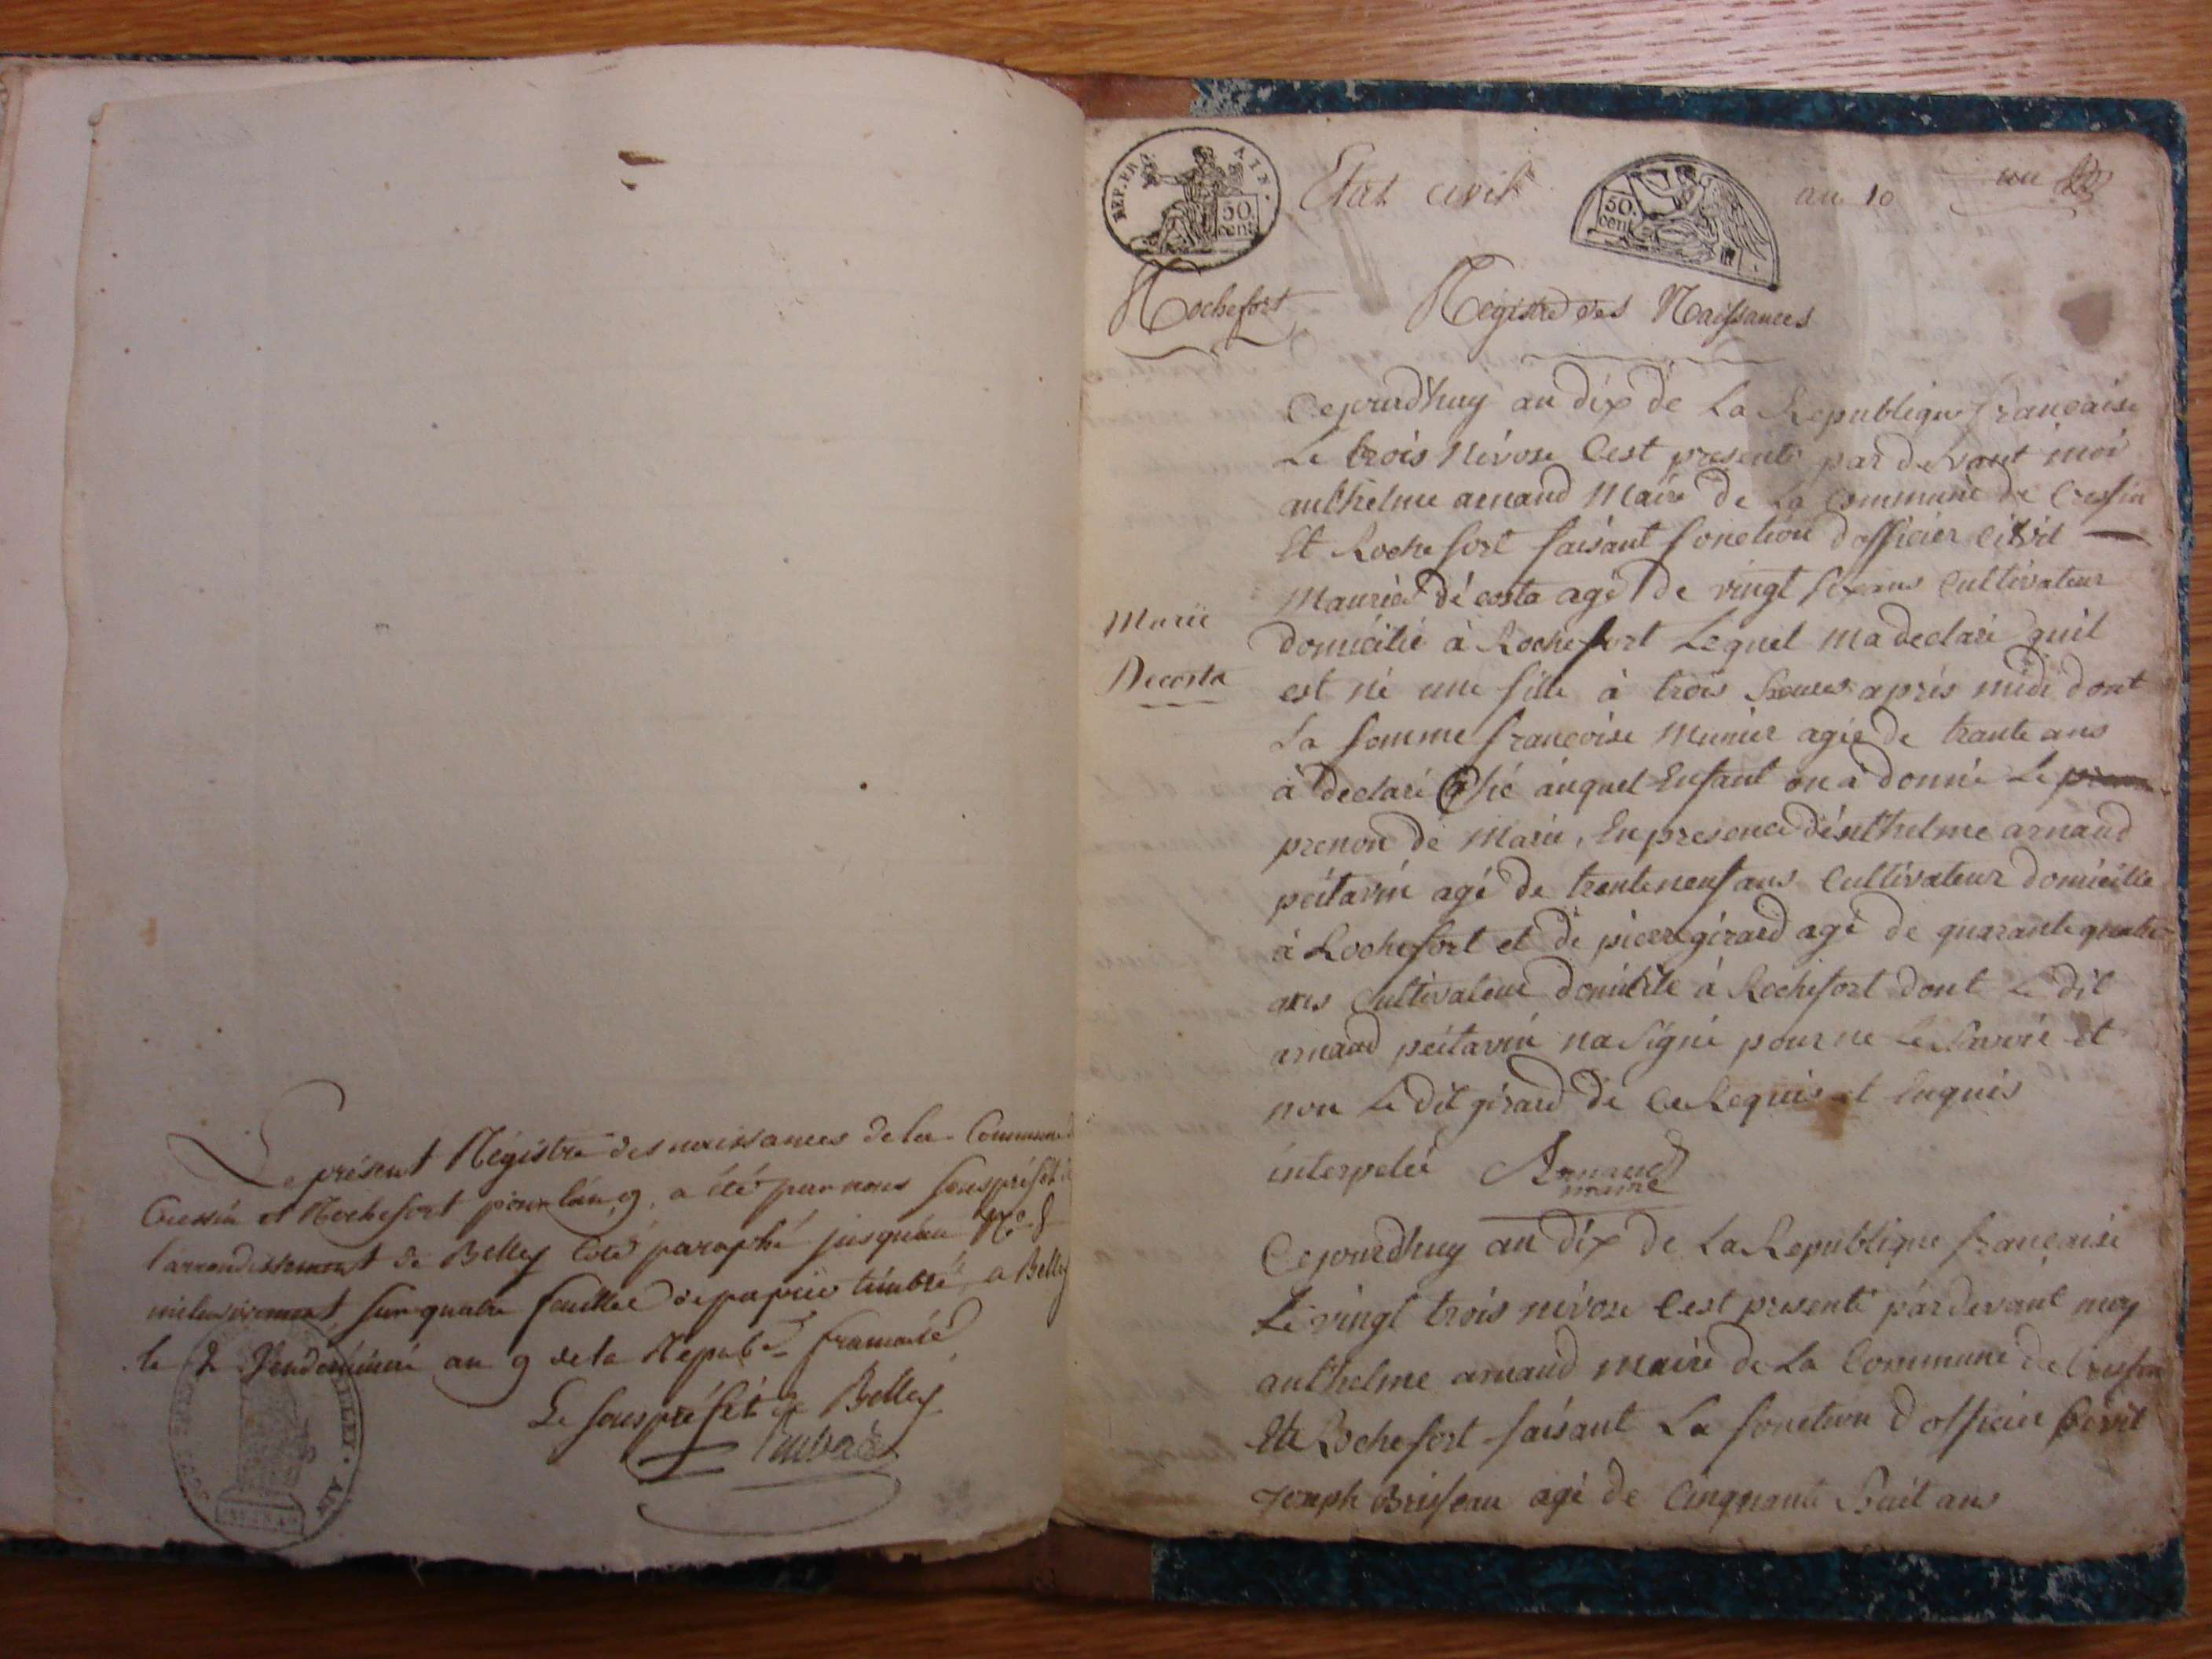 Le présent Régistre des naissances de la Commune
Cressin et Rochefort pour l'an 9, a été par nous sous préfet de
l'arrondissement de Belley coté paraphé jusqu'au N.o 8
inclusivement, sur quatre feuilles de papier timbré, a Belley
le 2 Vendémiaire an 9 de la Republ.e francaise
Le sous préfet de Belley
BELLEY · AIN
REP. FRA. AIN.
50 cent
Etat civil
50. cent
an 10
un
Rochefort
Régistre des Naissances
Cejourdhuy an dix de La Republique francaise
Le trois Nivose C'est presenté par devant moi
anthelme arnaud Maire de La Commune de Cressin
Et Rochefort faisant fonction dofficier Civil
Marie
Decosta
Maurice décosta agé de vingt six ans Cultivateur
domicilié à Rochefort Lequel ma declaré quil
est né une fille à trois heures après midi dont
La femme francoise Munier agée de trante ans
à declaré auquel Enfant on a donné Le
prenon de Marie, En presence dénthelme arnaud
peitavin agé de trente neuf ans Cultivateur domicille
à Rochefort et de pierre girard agé de quarante quatre
ans Cultivateur domicile à Rochefort dont Le dit
arnaud peitavin na Signé pour ne Le Savoir et
non Le dit girard de Ce Requis et Enquis
interpelée Arnaud
maire
Cejourdhuy an dix de La Republique francaise
Le vingt trois nivose C'est presenté par devant moy
anthelme arnaud maire de La Commune de Cressin
Et Rochefort faisant La fonction d officier Civil
Joseph Brisseau agé de Cinquante huit ans